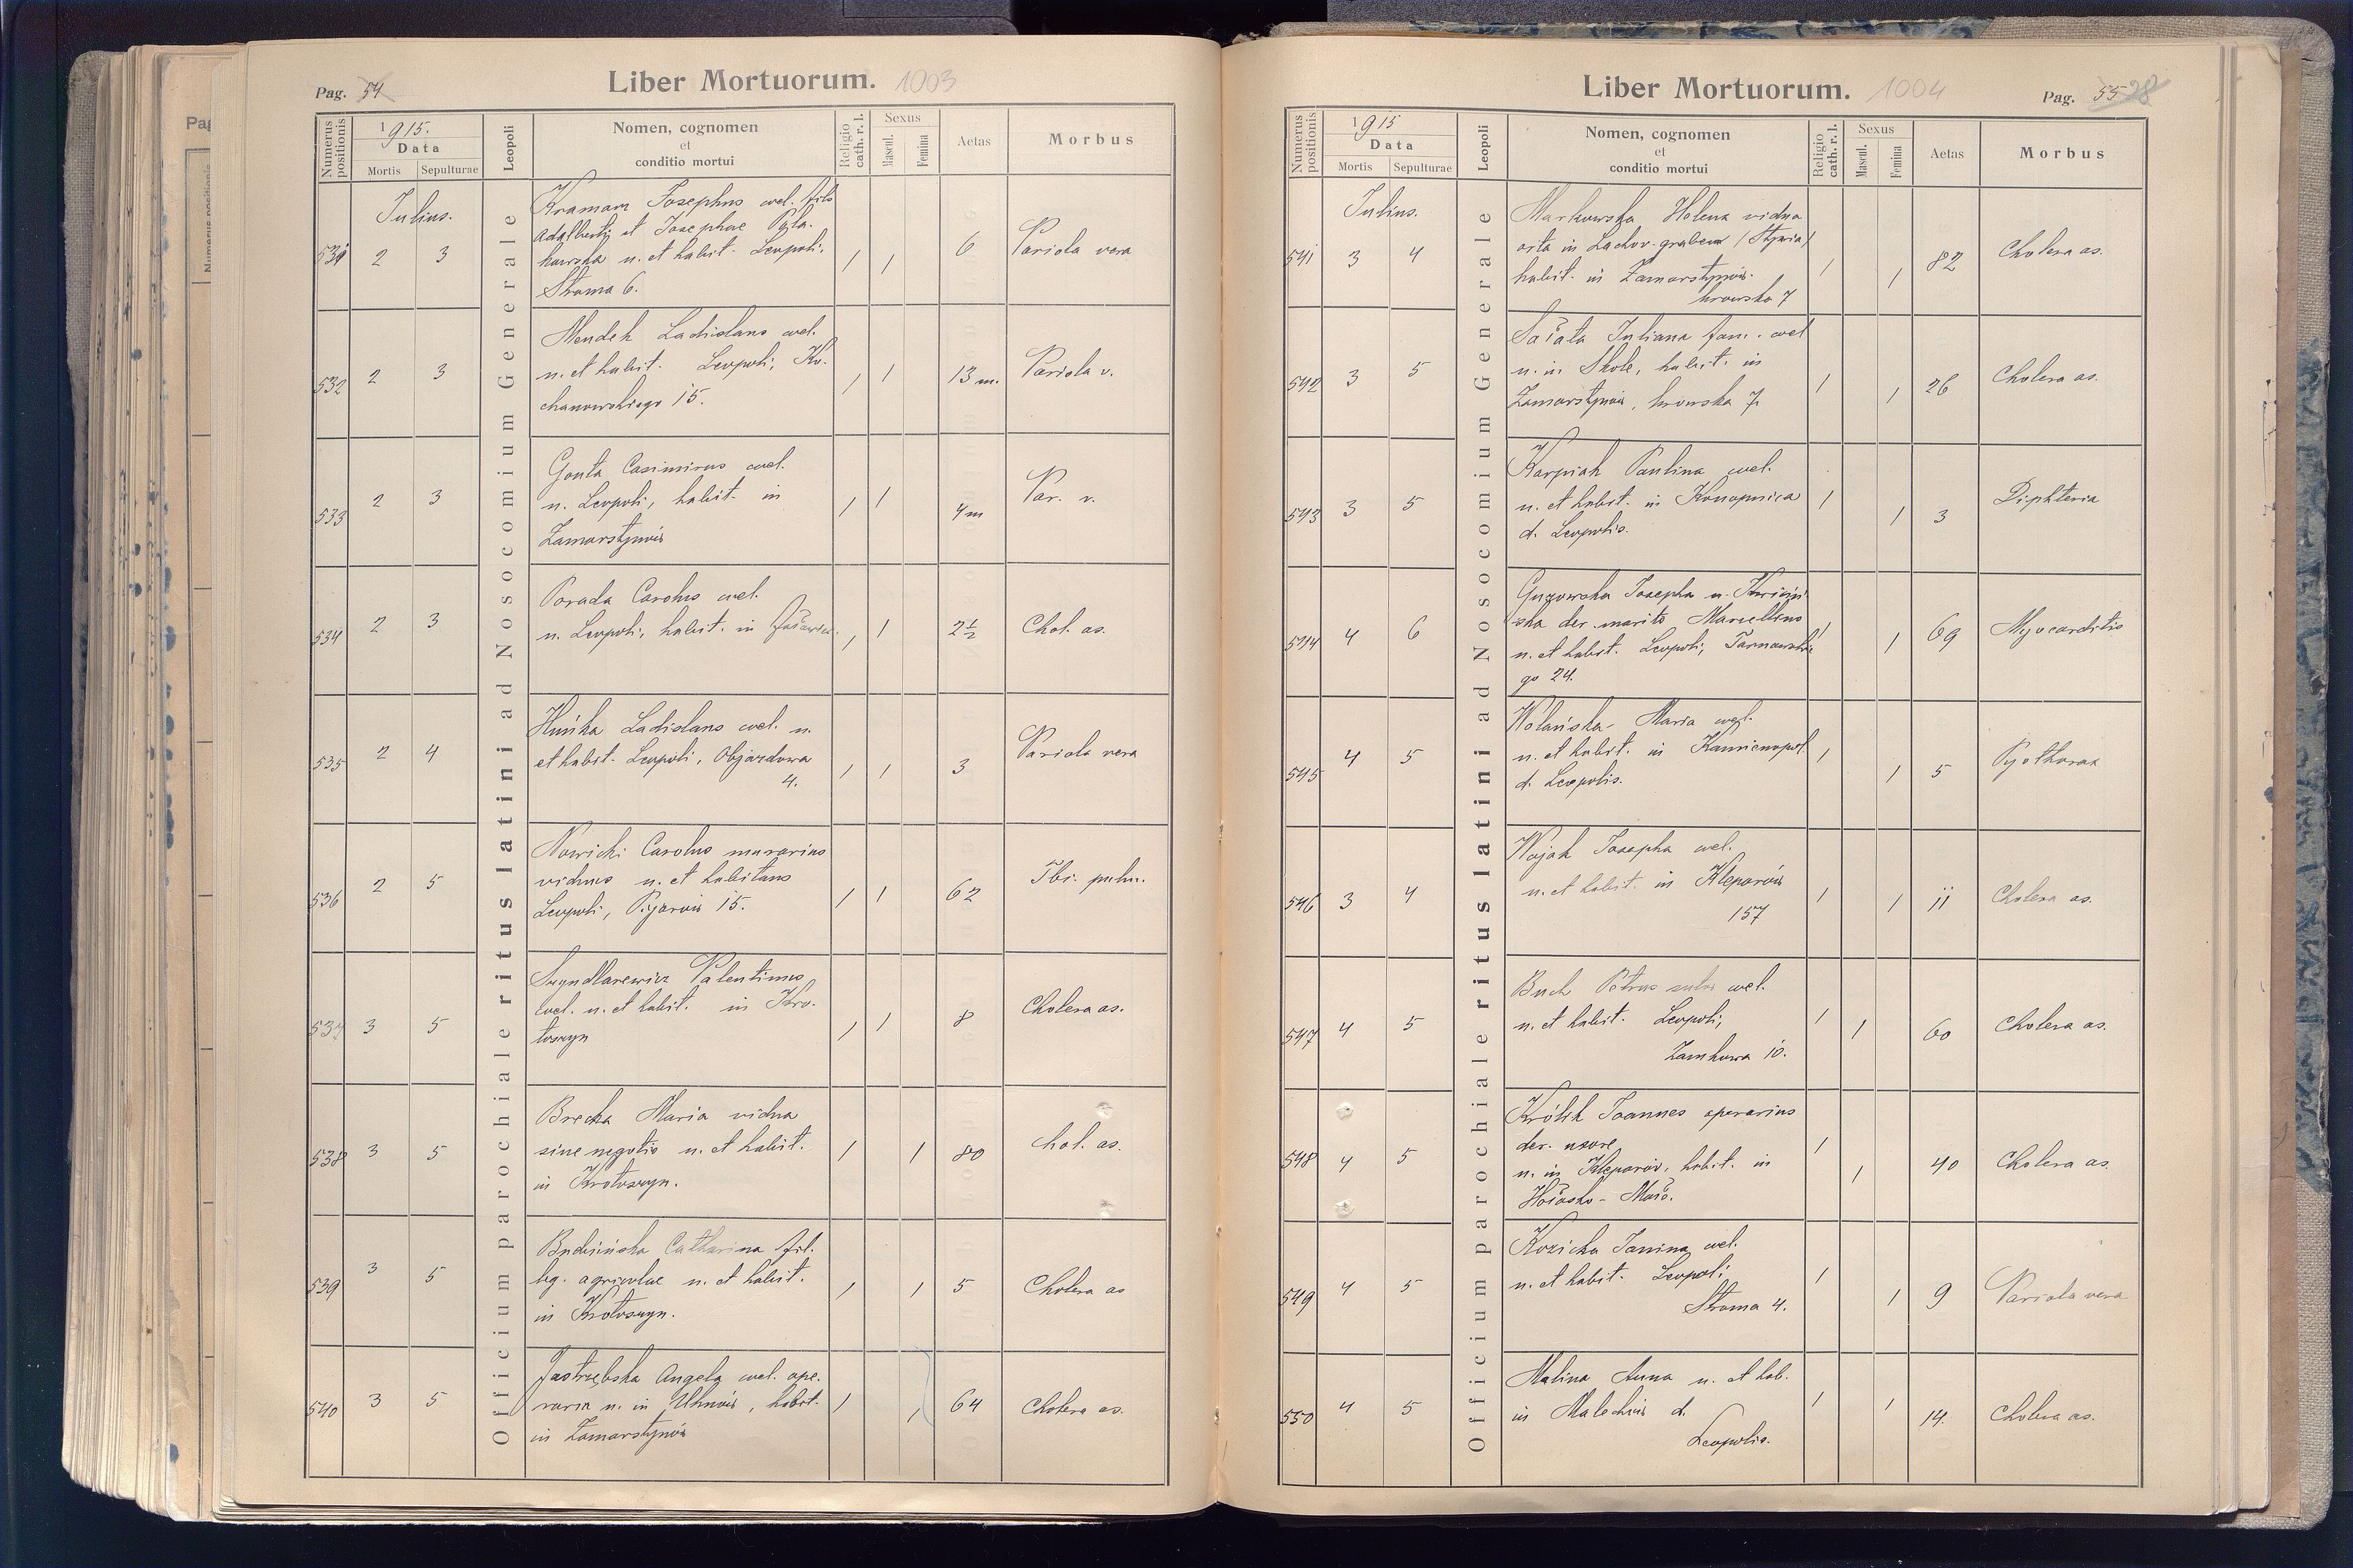 Pag. 54
Liber Mortuorum. 1003
Numerus positionis
1915.
Data
Mortis
Sepulturae
Leopoli
Nomen, cognomen
et
conditio mortui
Religio cath. r. l.
Sexus
Mascul.
Femina
Aetas
Morbus
Officium parochiale ritus latini ad Nosocomium Generale
Julius.
531 2 3
Kramarz Josephus cael. fils
Adalberti et Josephae
n. et habit. Leopoli,
Stroma 6.
/ / 6 Variola vera
532 2 3
Mendek Ladislaus cael.
n. et habit. Leopoli, Ko-
chanowskiego 15.
/ / 13 m. Variola v.
533 2 3
Gonta Casimirus cael.
n. Leopoli, habit. in
Zamarstynów
/ / 4 m Var. v.
534 2 3
Porada Carolus cael.
n. Leopoli, habit. in
/ / 2½ Chol. as.
535 2 4
Huńka Ladislaus cael. n.
et habit. Leopoli, Objazdowa
4.
/ / 3 Variola vera
536 2 5
Nowicki Carolus murarius
viduus n. et habitans
Leopoli, Pijarów 15.
/ / 62 Tbc. pulm.
537 3 5
Szyndlarewicz Valentinus
cael. n. et habit. in Kro-
toszyn
/ / 8 Cholera as.
538 3 5
Brecka Maria vidua
sine negotio n. et habit.
in Krotoszyn.
/ / 80 Chol. as.
539 3 5
Budzińska Catharina fil.
leg. agricolae n. et habit.
in Krotoszyn.
/ / 5 Cholera as
540 3 5
Jastrzębska Angela cael. ope-
raria n. in Uhnów, habit.
in Zamarstynów
/ / 64 Cholera as.
Liber Mortuorum. 1004
Pag. 55 28
Numerus positionis
1915
Data
Mortis
Sepulturae
Leopoli
Nomen, cognomen
et
conditio mortui
Religio cath. r. l.
Sexus
Mascul.
Femina
Aetas
Morbus
Officium parochiale ritus latini ad Nosocomium Generale
Julius.
541 3 4
Markowska Helena vidua
orta in (Styria)
habit. in Zamarstynów.
lwowska 7
/ / 82 Cholera as.
542 3 5
Juliana fam. cael
n. in Skole, habit. in
Zamarstynów, lwowska 7.
/ / 26 Cholera as.
543 3 5
Karpiak Paulina cael.
n. et habit. in Konopnica
d. Leopolis.
/ / 3 Diphteria
544 4 6
Guzowska Josepha n.
der. marito Marcellino
n. et habit. Leopoli, Tarnowskie
go 24.
/ / 69 Myocarditis
545 4 5
Wolańska Maria cael.
n. et habit. in Kamienopol
d. Leopolis.
/ / 5 Pyothorax
546 3 4
Wojak Josepha cael.
n. et habit. in Kleparów
157
/ / 11 Cholera as.
547 4 5
Buch Petrus sutor cael.
n. et habit. Leopoli,
Zamkowa 10.
/ / 60 Cholera as.
548 4 5
Królik Joannes operarius
der. uxore,
n. in Kleparów, habit. in
Hołosko - Mało.
/ / 40 Cholera as.
549 4 5
Kozicka Janina cael.
n. et habit. Leopoli
Stroma 4.
/ / 9 Variola vera
550 4 5
Malina Anna n. et hab.
in Malechów d.
Leopolis.
/ / 14. Cholera as.